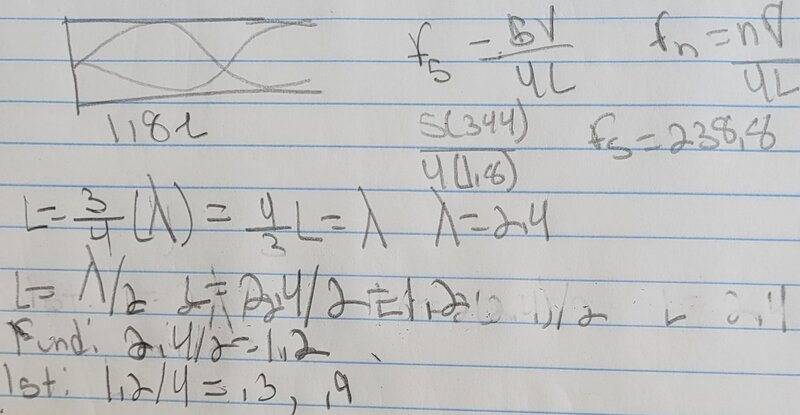 f₅ = 5V/4L fₙ = nV/4L
1,82
5(344)/4(1,8) f₅ = 238,8
L = 3/4 (λ) = 4/3 L = λ λ = 2,4
L = λ/2 2,4/2 = 1,2
Fund: 2,4/2 = 1,2
1st: 1,2/4 = ,3, ,9